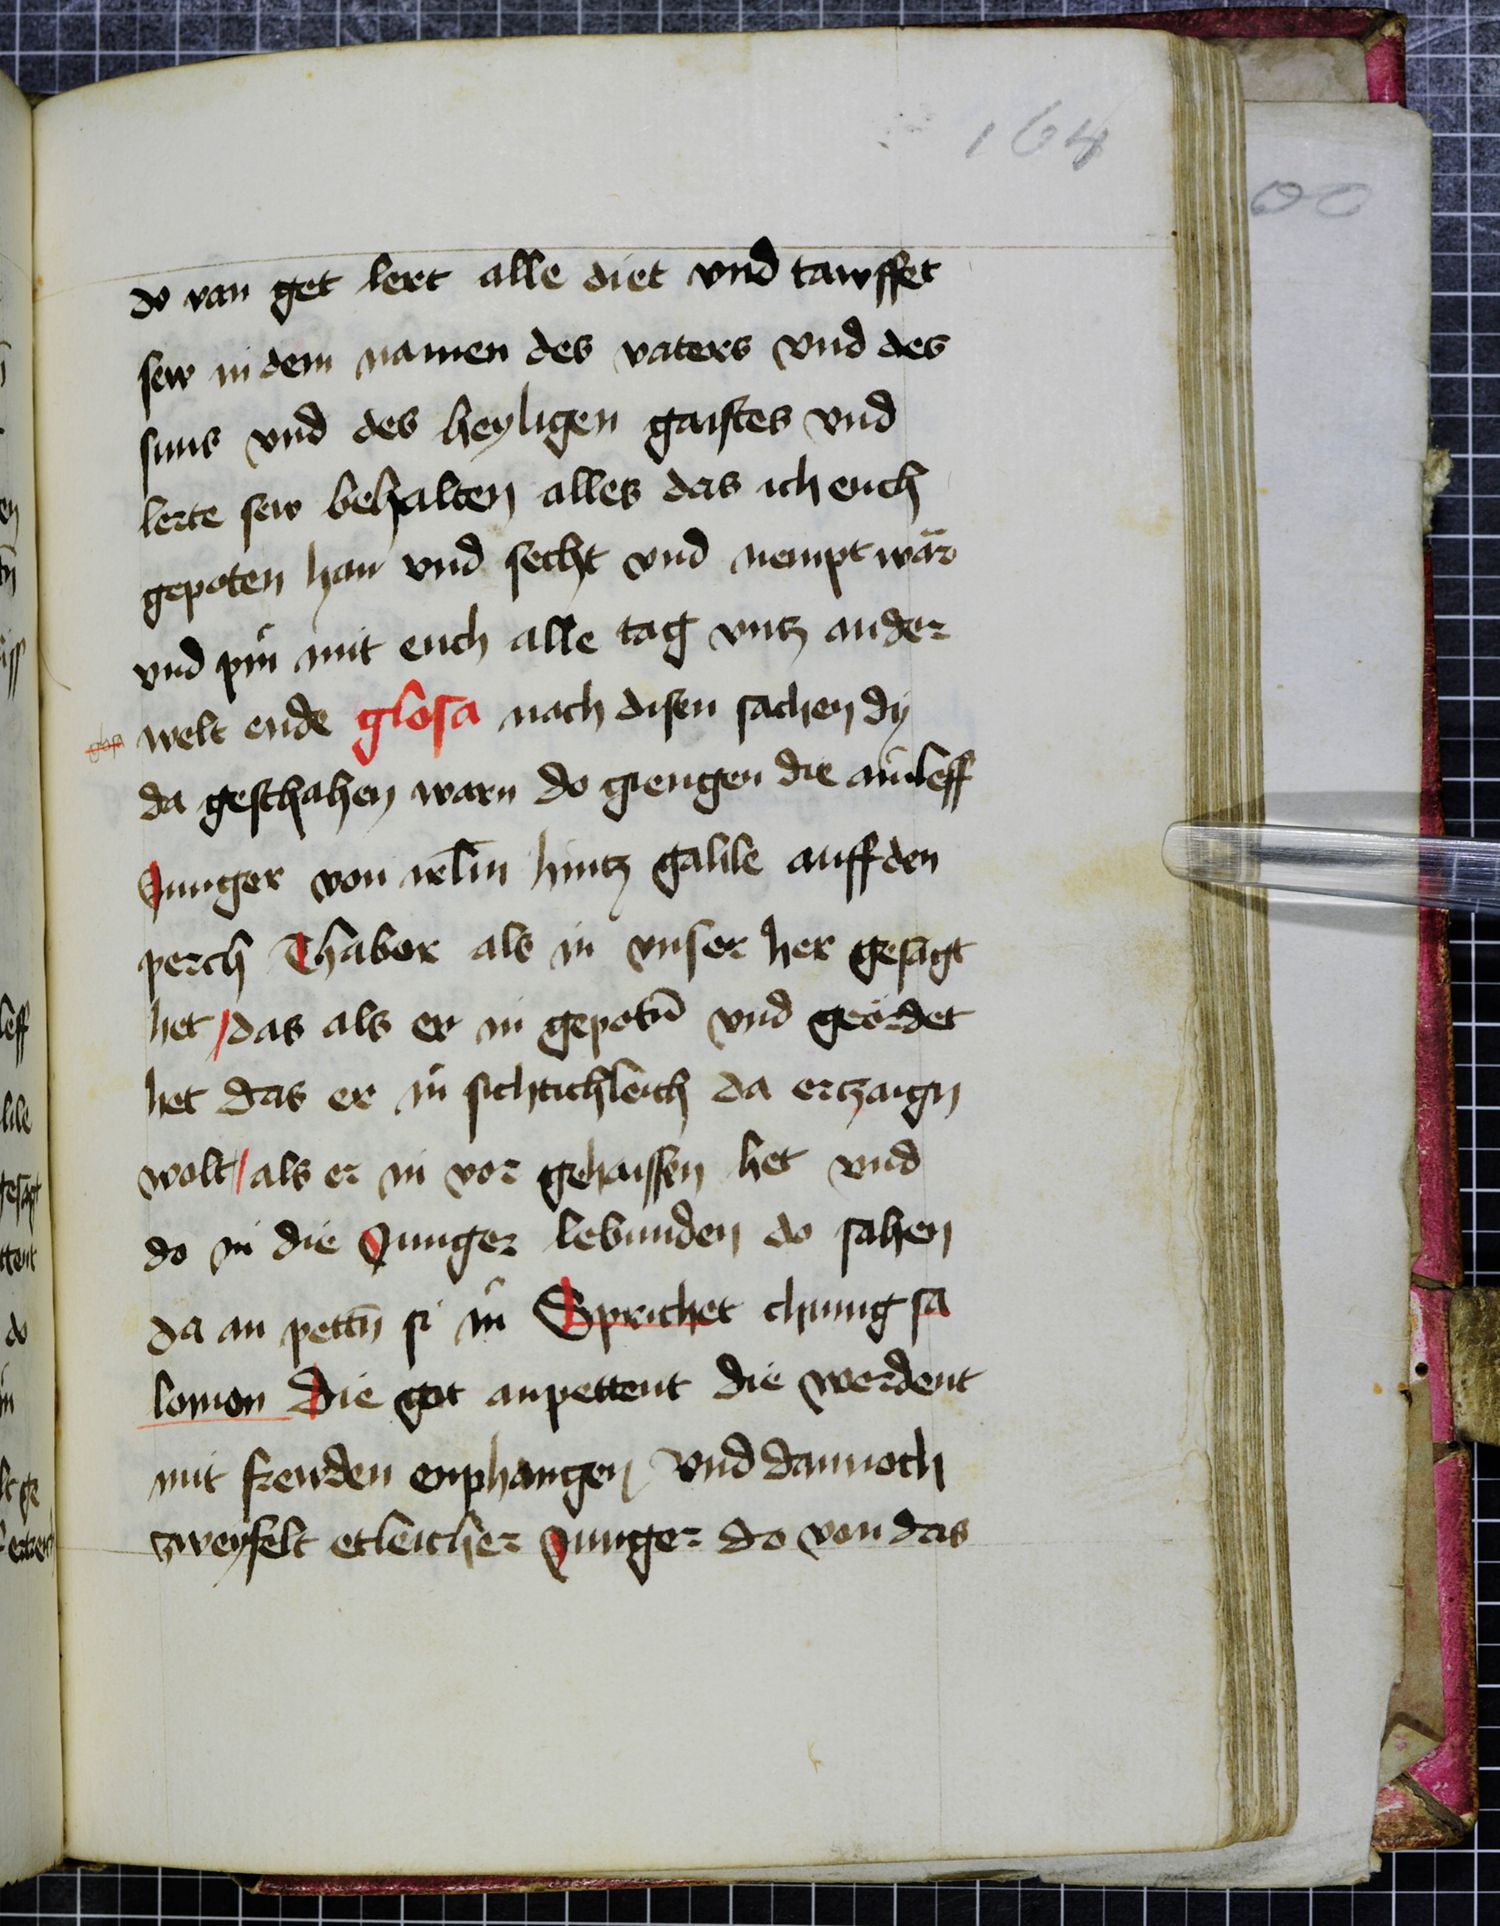 164
00
do van get lert alle diet vnd tawffet
sew in dem namen des vaters vnd des
suns vnd des heyligen gaistes vnd
lerte sew behalten alles das ich euch
gepoten han vnd secht vnd nempt wär
vnd pin mit euch alle tag vntz an der
welt ende glosa nach disen sachen dy
glosa
da geschahen warn do giengen die ainleff
Junger von irlm̄ hintz galile auff den
perch Thabor als in vnser her gesagt
het / das als er in gepotn̄ vnd geördet
het das er in sichtichleich da ertzaign
wolt / als er in vor gehaissen het vnd
do in die Junger lebunden do sahen
da an pettn̄ si in Sprichet chunig sa
lomon Die got anpettent die werdent
mit frewden enphangen vnd dannoch
zweyfelt etleicher Junger do von das